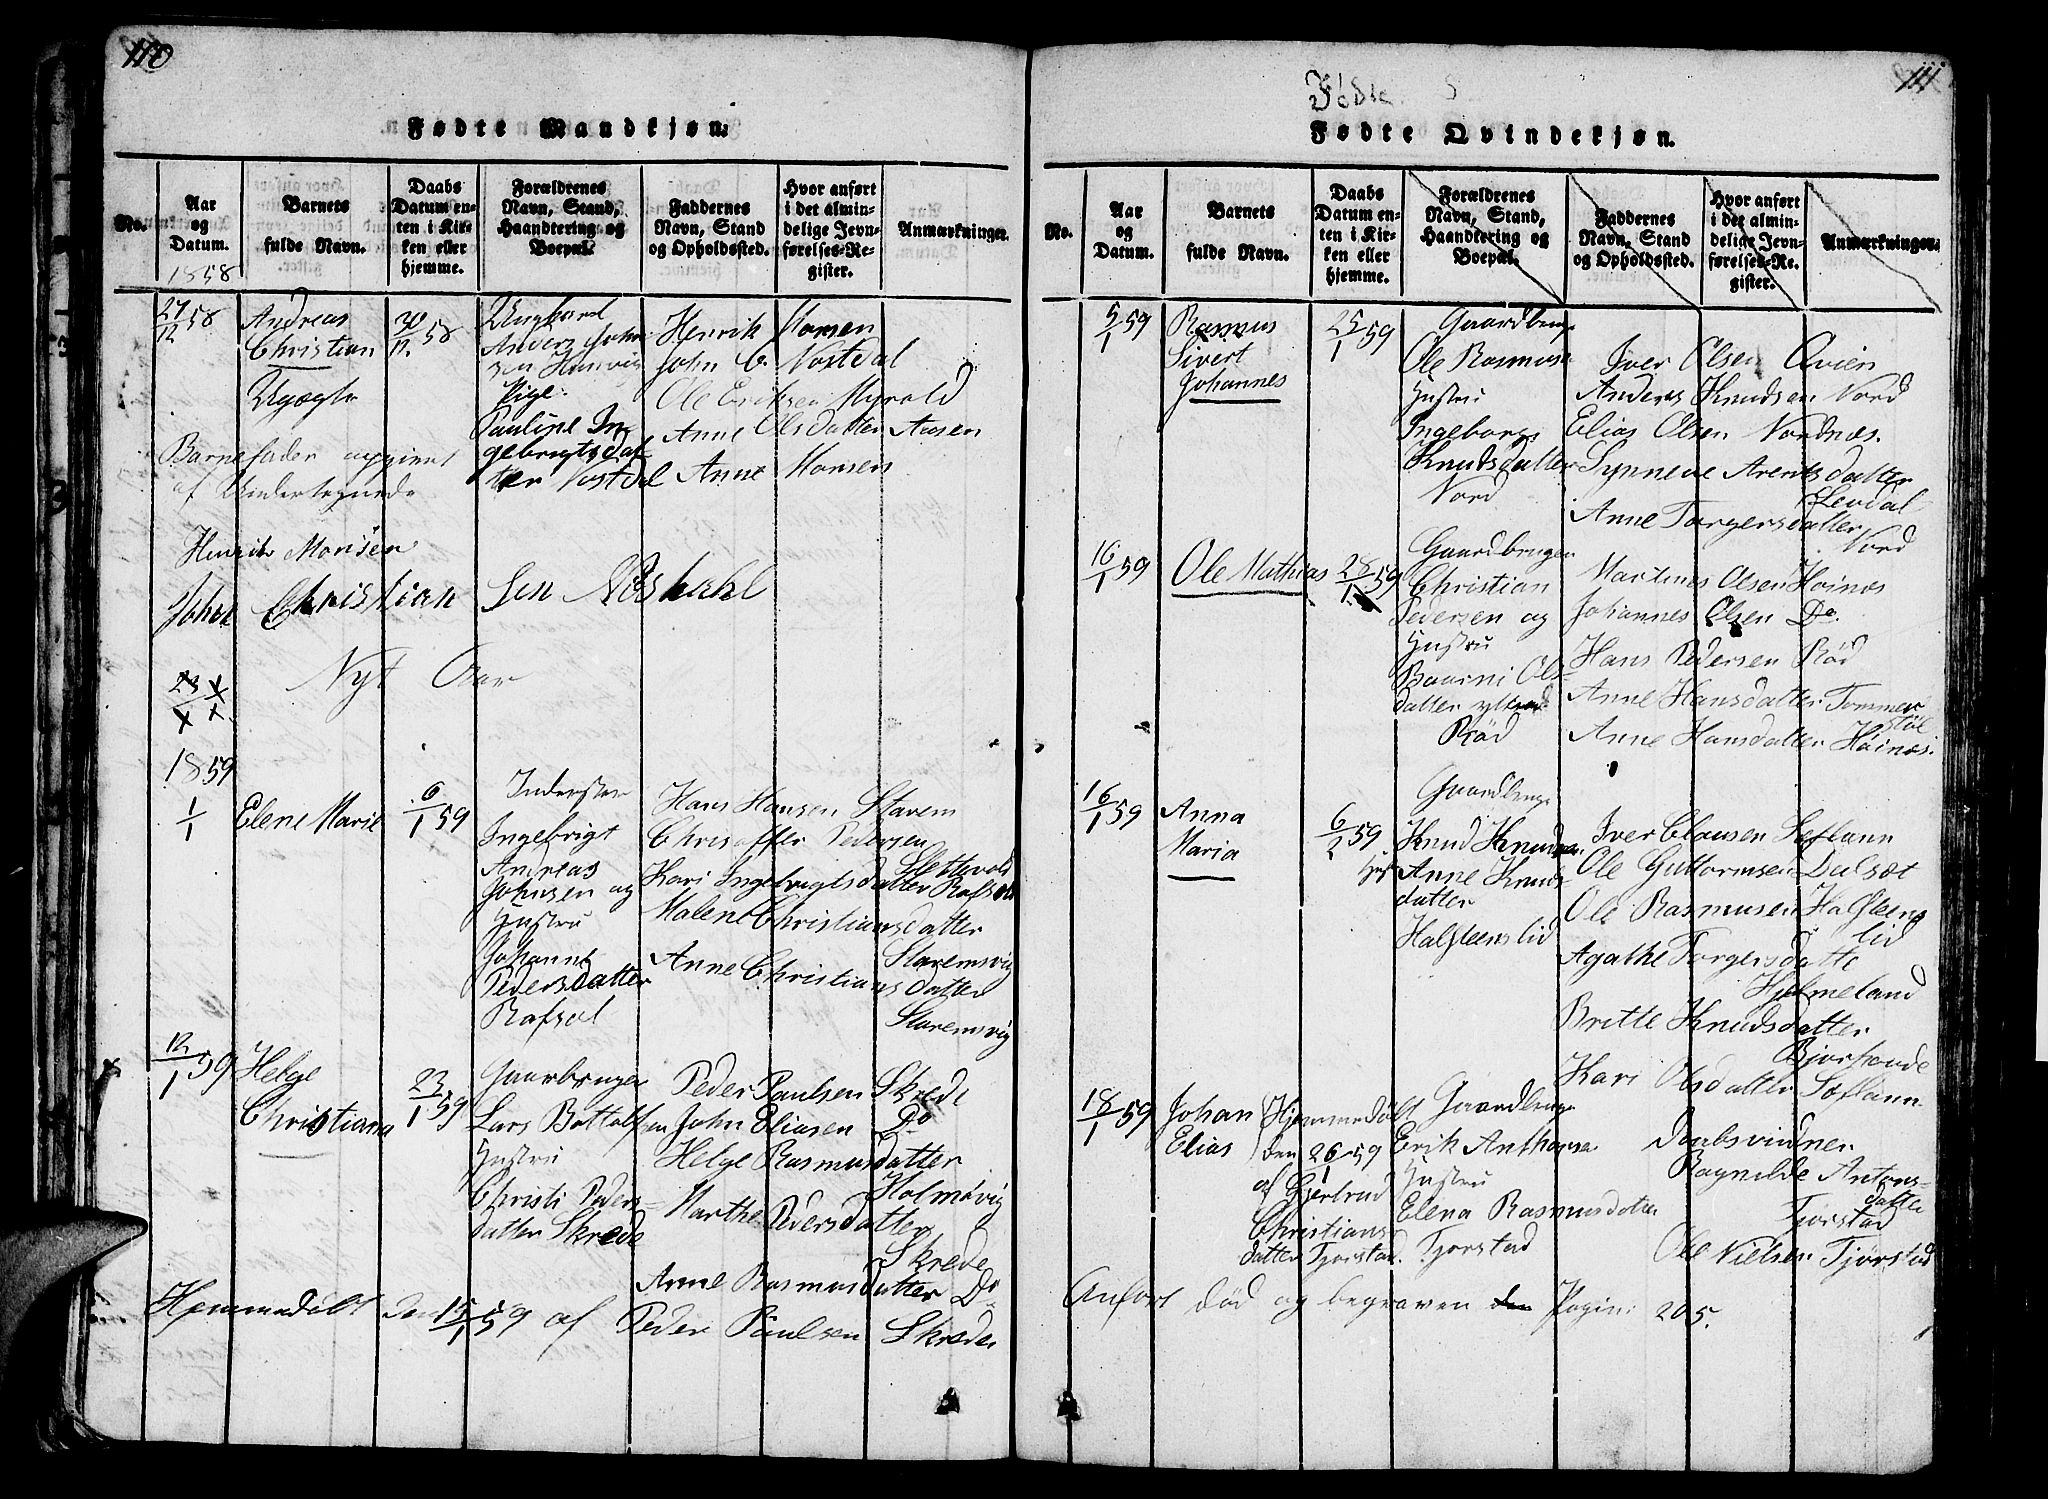 110
Fødte Mandkjøn.
No.
Aar og Datum.
1858
Barnets fulde Navn.
Daabs Datum enten i Kirken eller hjemme.
Forældrenes Navn, Stand, Haandtering og Boepæl.
Faddernes Navn, Stand og Opholdssted.
Hvor anført i det almindelige Jevnførelses-Register.
Anmærkninger.
27/12 58
Andreas
Christian
Uægte
30/11. 58
Ungkarl
Anders John
sen
Pige
Pauline In
gebrigtsdat
ter Vostdal
Henrik Monsen
John C. Vostdal
Ole Eriksen Myrold
Anne Olsdatter Aasen
Anne Monsen
Barnefader opgivet
af Undertegnede
Henrik Monsen
Johan Christian Sen
Nyt Aar
1859
1/1
Elene Marie
6/1 59
Inderster
Ingebrigt
Andreas
Johnsen og
Hustru
Johanne
Pedersdatter
Rafsal
Hans Hansen Starem
Chrisoffer Pedersen
Slettevold
Kari Ingebrigtsdatter Rafsal
Malene Christiansdatter
Staremsvig
Anne Christians datter
Staremsvig
12/1 59
Helge
Christiana
23/1 59
Gaarbruger
Lars Bottolfsen
Hustru
Christi Peders
datter Skrede
Peder Paulsen Skrede
John Eliasen Do
Helge Rasmusdatter
Holmøvig
Marthe Pedersdatter
Skrede
Anne Rasmusdatter Do
Hjemmedøbt den 15/1 59 af Peder Paulsen Skrede
111
Fødte Qvindekjøn.
No.
Aar og Datum.
Barnets fulde Navn.
Daabs Datum enten i Kirken eller hjemme.
Forældrenes Navn, Stand, Haandtering og Boepæl.
Faddernes Navn, Stand og Opholdssted.
Hvor anført i det almindelige Jevnførelses-Register.
Anmærkninger.
5/1 59
Rasmus
Sivert
Johannes
25/1 59
Gaardbruge
Ole Rasmusen
Hustru
Ingeborg
Knudsdatter
Nord
Iver Olsen Qvien
Anders Knudsen Nord
Elias Olsen Nordnæs.
Synneve Arentsdatter
Levdal
Anne Torgersdatter
Nord
16/1 59
Ole Mathias
28/1 59
Gaardbruger
Christian
Pedersen og
Hustru
Baarni Ols
datter ytre
Rød
Martines Olsen Hoinæs
Johannes Olsen Do.
Hans Pedersen Rød
Anne Hansdatter Tommer
støl
Anne Hansdatter Höinæs.
16/1 59
Anna
Maria
6/2 59
Gaardbruge
Knud Knudsen
Hust Anne Knuds
datter
Halsteenslid
Iver Clausen Sefland
Ole Guttormsen Dalsæt
Ole Rasmusen Halsteens
lid
Agathe Torgersdatte
Hjelmeland
Britte Knudsdatter
Bjørstande
Kari Olsdatter Søfland
18/1 59
Johan
Elias
Hjemmedøbt
den 26/1 59
af Gjertrud
Christians
datter Tjorstad.
Gaardbruge
Erik Anthonsen
Hustru
Elena Rasmusdatter
Tjorstad
Daabsvidner
Ragnilde Antons-
datter
Tjorstad
Ole Nielsen Tjorstad
Anfort død og begraven den Pagina 205.